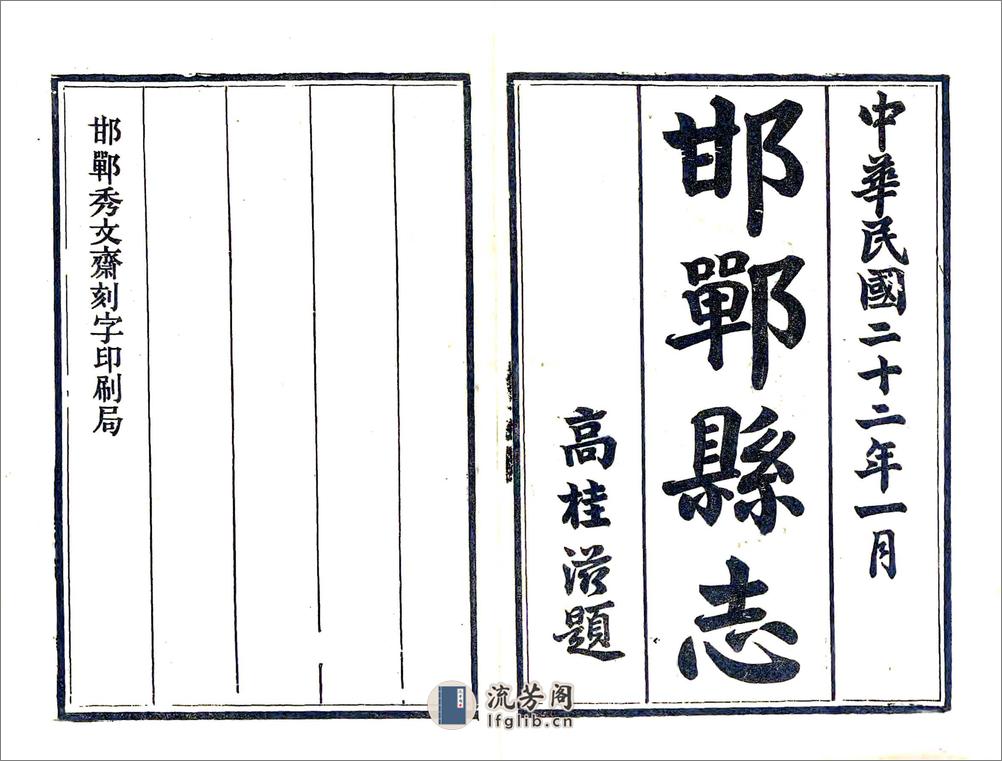 中華民國二十二年一月
邯鄲縣志
高桂滋題
邯鄲秀文齋刻字印刷局
流芳阁
lfglib.cn